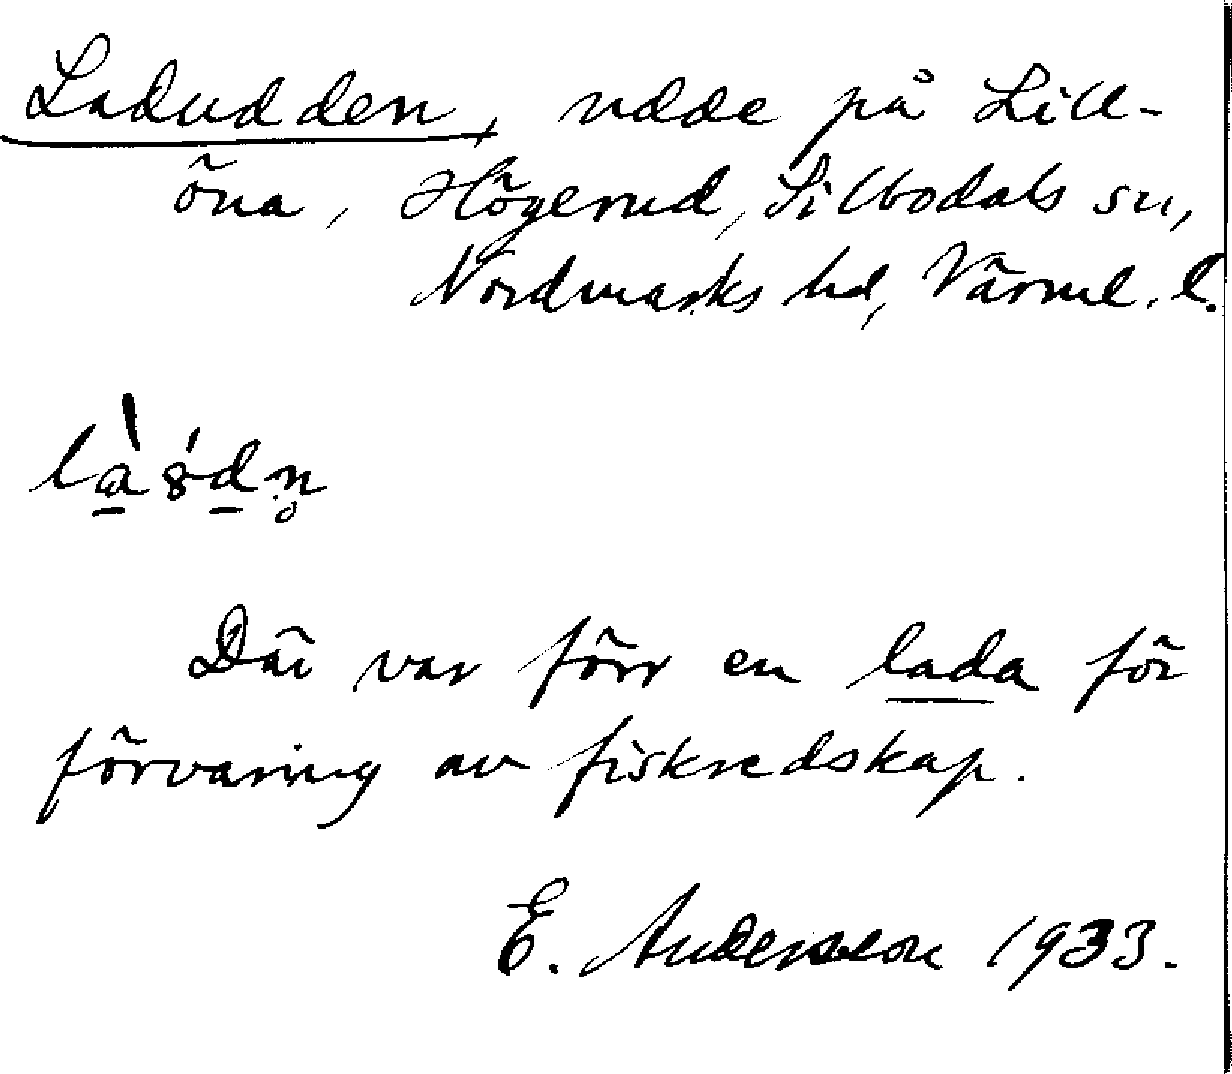 Ladudden, udde på Lill-
öna, Högerud, Silbodals sn,
Nordmarks hd, Värml. l.
Där var förr en lada för
förvaring av fiskredskap.
E. Andersson 1933.